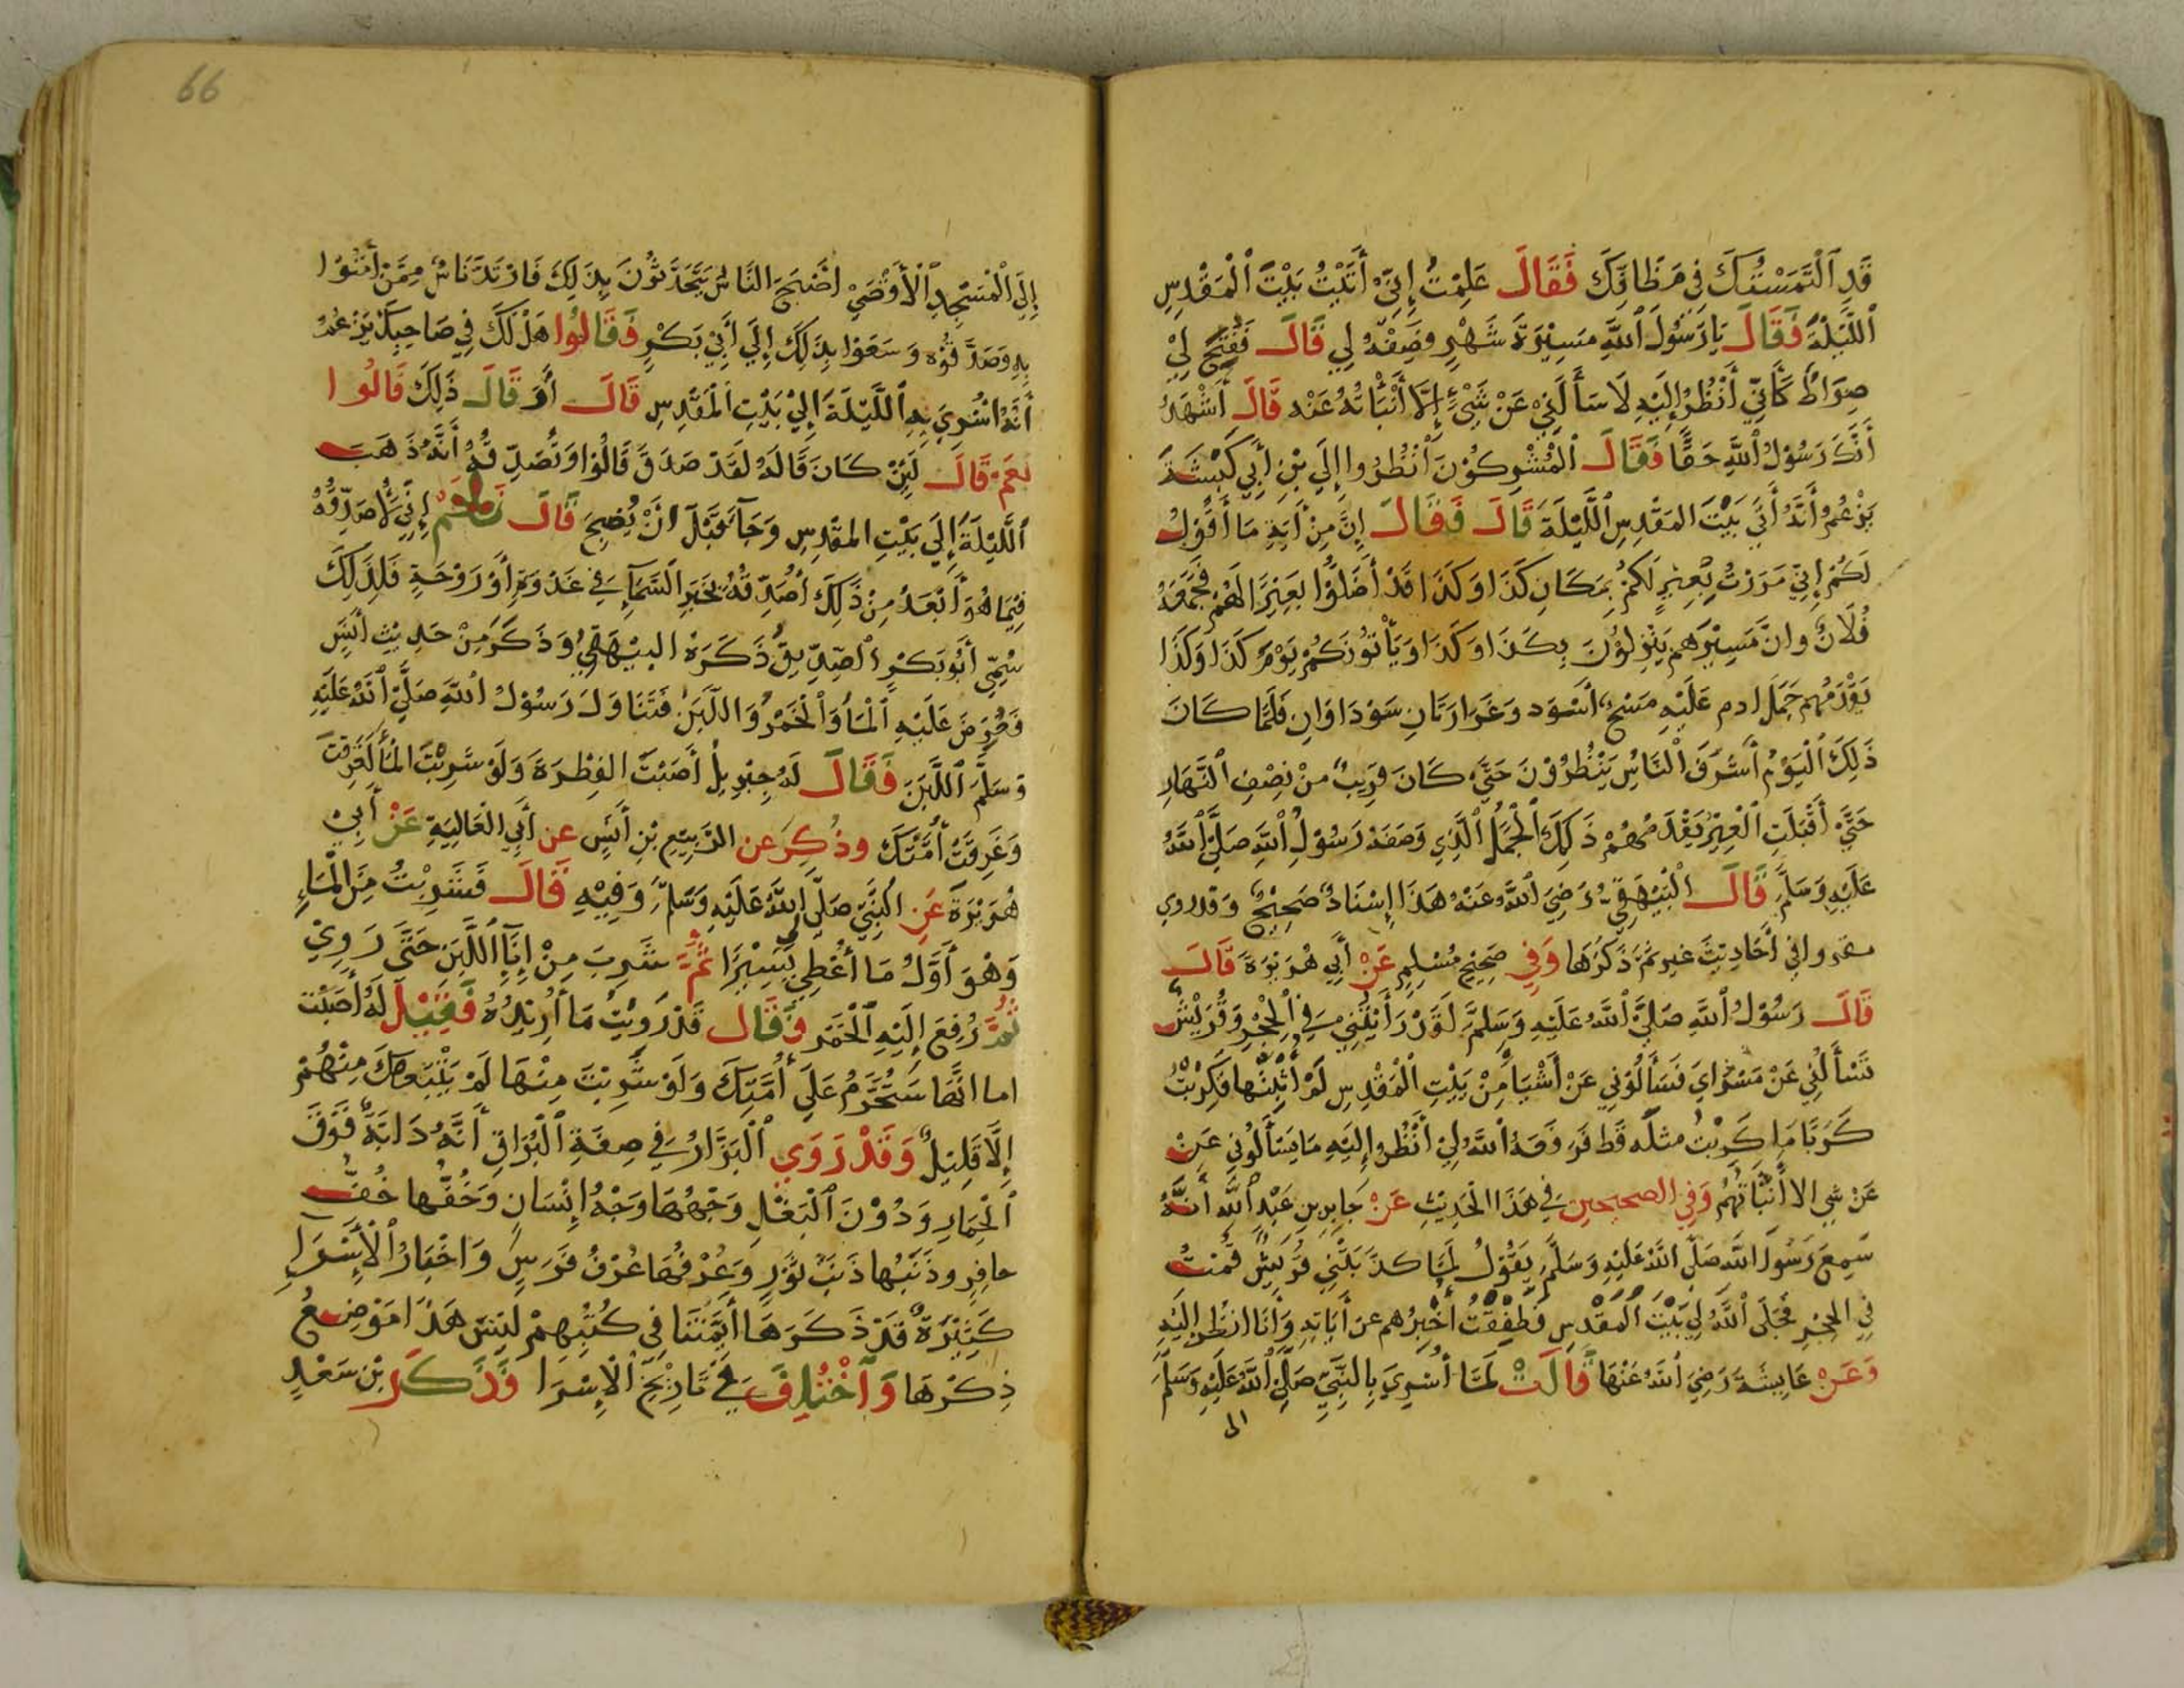 قَدِ ٱلْتَمَسْتُكَ فِي مَظَانِكَ فَقَالَ عَلِمْتُ إِنِّي أَتَيْتُ بَيْتَ ٱلْمَقْدِسِ
ٱللَّيْلَةَ فَقَالَ يَا رَسُولَ ٱللَّهِ مَسِيْرَةَ شَهْرٍ فَصِفْهُ لِي قَالَ فَفُتِحَ لِيْ
صِرَاطٌ كَأَنِّي أَنْظُرُ إِلَيْهِ لَا سَأَلَنِيْ عَنْ شَيْءٍ إِلَّا أَنْبَأْتُهُ عَنْه قَالَ أَشْهَدُ
أَنَّكَ رَسُوْلُ ٱللَّهِ حَقًّا فَقَالَ ٱلْمُشْرِكُوْنَ ٱنْظُرُوا إِلَى بْنِ أَبِي كَبْشَةَ
يَزْعُمُ أَنَّهُ أَتَى بَيْتَ المَقْدِسِ ٱللَّيْلَةَ قَالَ فَقَالَ إِنَّ مِنْ أَيَةِ مَا أَقُوْلُ
لَكُمْ إِنِّي مَرَرْتُ بِعِيْرٍ لَكُمْ بِمَكَانِ كَذَا وَكَذَا قَدْ أَضَلُّوْا بَعِيْرًا لَهُمْ فَجَمَعَهُ
فُلَانٌ وانَّ مَسِيْرَهم يَنْزِلُوْنَ بِكَذَا وَكَذَا وَيَأْتُوْنَكُمْ يَوْمَ كَذَا وَكَذَا
يَقْدَمُهم جَمَلٌ ادم عَلَيْهِ مَسْحٌ أَسْوَد وَغَرَارَتَانِ سَوْدَاوَانِ فَلَمَّا كَانَ
ذَلِكَ ٱلْيَوْمُ أَشْرَفَ ٱلنَّاسُ يَنْظُرُوْنَ حَتَّى كَانَ قَرِيبٌ مِنْ نِصْفِ ٱلنَّهَارِ
حَتَّى أَقْبَلَتِ ٱلْعِيْرُ يَقْدَمُهُمْ ذَلِكَ ٱلْجَمَلُ ٱلَّذِي وَصَفَهُ رَسُوْلُ ٱللَّهِ صَلَّى ٱللَّهُ
عَلَيْهِ وَسَلَّمَ قَالَ ٱلْبَيْهَقِيُّ رَضِيَ ٱللَّهُ عَنْهُ هَذَا إِسْنَادٌ صَحِيْحٌ وَقدروي
مفروا في أَحَادِيْثَ غير ثُمَّ ذَكَرَهَا وَفِي صَحِيْحِ مُسْلِمٍ عَنْ أَبِي هُرَيْرَةَ قَالَ
قَالَ رَسُوْلُ ٱللَّهِ صَلَّى ٱللَّهُ عَلَيْهِ وَسَلَّمَ لَقَدْ رَأَيْتُنِيْ فِي ٱلْحِجْرِ وَقُرَيْشٌ
تَسْأَلُنِي عَنْ مَسْرَايَ فَسَأَلُوْنِي عَنْ أَشْيَاءَ مِنْ بَيْتِ ٱلْمَقْدِسِ لَمْ أُثْبِتْهَا فَكُرِبْتُ
كَرْبًا مَا كُرِبْتُ مثلَه قَط فَرَفَعَهُ ٱللَّهُ لِيْ أَنْظُرُ إِلَيْهِ مَا يَسْأَلُونِي عَنْ
عَنْ شي الا أَنْبَأْتُهُمْ وَفِي الصحيحين فِي هَذَا الْحَدِيْثِ عَنْ جَابِرِ بنِ عَبْدِ ٱللَّهِ أَنَّهُ
سَمِعَ رَسُوْلَ اللَّهِ صَلَّى اللَّهُ عَلَيْهِ وَسَلَّمَ يَقُوْلُ لَمَّا كذَّبَتْنِي قُرَيْشٌ قُمْتُ
فِي الحِجْرِ فَجَلَى ٱللَّهُ لِي بَيْتَ ٱلْمَقْدِسِ فَطَفِقْتُ أُخْبِرُهم عن أَيَاتِهِ وَأَنَا انظُر إِلَيْهِ
وَعَنْ عَايِشَةَ رَضِيَ ٱللَّهُ عَنْهَا قَالَتْ لَمَّا أُسْرِيَ بِالنَّبِيِّ صَلَّى ٱللَّهُ عَلَيْهِ وَسَلَّمَ
الى
66
إِلَى الْمَسْجِدِ ٱلْأَقْصَى اصْبَحَ النَّاسُ يَتَحَدَّثُوْنَ بِذَلِكَ فَارْتَدَّ نَاسٌ مِمَّنْ أَمَنُوْا
بِهِ وَصَدَّقُوْه وَسَعَوْا بِذَلِكَ إِلَى أَبِيْ بَكْرٍ فَقَالُوْا هَلْ لَكَ فِي صَاحِبِكَ يَزْعُمُ
أَنَّهُ اُسْرِيَ بِهِ ٱللَّيْلَةَ إِلَىْ بَيْتِ الْمَقْدِسِ قَالَ أَوَ قَالَ ذَلِكَ قَالُوا
نَعَمْ قَالَ لَئِنْ كَانَ قَالَهُ لَقَدْ صَدَقَ قَالُوْا وَتُصَدِّقُهُ أَنَّهُ ذَهَبَ
ٱللَّيْلَةَ إِلَى بَيْتِ المقْدِسِ وَجَآءَ قَبْلَ انْ يُصْبِحَ قَالَ نَعَمْ إِنِّي لَأُصَدِّقُهُ
فِيْمَا هُوَ أَبْعَدُ مِنْ ذَلِكَ أُصَدِّقُهُ بِخَبَرِ ٱلسَّمَآءِ فِي غَدْوَةٍ أَوْ رَوْحَةٍ فَلِذَلِكَ
سُمِّي أَبُو بَكْرٍ ٱلصِّدِّيقَ ذَكَرَهُ البيْهَقِيُّ وَذَكَرَ مِنْ حَدِيْثِ أَنَسٍ
فَعُرِضَ عَلَيْهِ ٱلْمَاءُ وَٱلْخَمْرُ وَاللَّبَنُ فَتَنَاوَلَ رَسُوْلُ ٱللَّهِ صَلَّى ٱللَّهُ عَلَيْهِ
وَسَلَّمَ ٱللَّبَنَ فَقَالَ لَهُ جِبْرِيلُ أَصَبْتَ الفِطْرَةَ وَلَوْ شَرِبْتَ الْمَاءَ لَغَرِقْتَ
وَغَرِقَتْ أُمَّتُكَ وذُكِرَ عن الرَّبِيْعِ بْنِ أَنَسٍ عن أَبِي الْعَالِيَةِ عَنْ أَبِيْ
هُرَيْرَةَ عَنِ النَّبِيِّ صَلَّى اللَّهُ عَلَيْهِ وَسَلَّمَ وَفِيْهِ قَالَ فَشَرِبْتُ مِنَ الْمَاءِ
وَهُوَ أَوَّلُ مَا أُعْطِي يَسِيْرًا ثُمَّ شَرِبَ مِنْ إِنَآءِ ٱللَّبَنِ حَتَّى رَوِيْ
ثُمَّ رُفِعَ إِلَيْهِ ٱلْخَمْر فَقَالَ قَدْ رَوِيْتُ مَا أُرِيْدُهُ فَقِيْلَ لَهُ أَصَبْتَ
اما انَّهَا سَتُحَرَّمُ عَلَى أُمَّتِكَ وَلَوْ شَرِبْتَ مِنْهَا لَمْ يَتْبَعْكَ مِنْهُمْ
إِلَّا قَلِيْلٌ وَقَدْ رَوَي ٱلْبَزَّارُ فِي صِفَةِ ٱلْبُرَاقِ أَنَّهُ دَابَّةٌ فَوْقَ
ٱلْحِمَارِ وَدُوْنَ ٱلْبَغْلِ وَجْهُهَا وَجْهُ إِنْسَانٍ وَخُفُّهَا خُفُّ
حَافِرٍ وذَنَبُها ذَنَبُ ثَوْرٍ وَعُرْفُهَا عُرْفُ فَرَسٍ وَاخْبَارُ ٱلْإِسْرَاءِ
كَثِيْرَةٌ قَدْ ذَكَرَهَا أَيِمَّتُنَا فِي كُتُبِهِمْ لَيْسَ هَذَا مَوْضِعُ
ذِكْرَهَا وَٱخْتُلِفَ فِيْ تَارِيْخِ ٱلْإِسْرَا فَذَكَرَ بْن سَعْدٍ